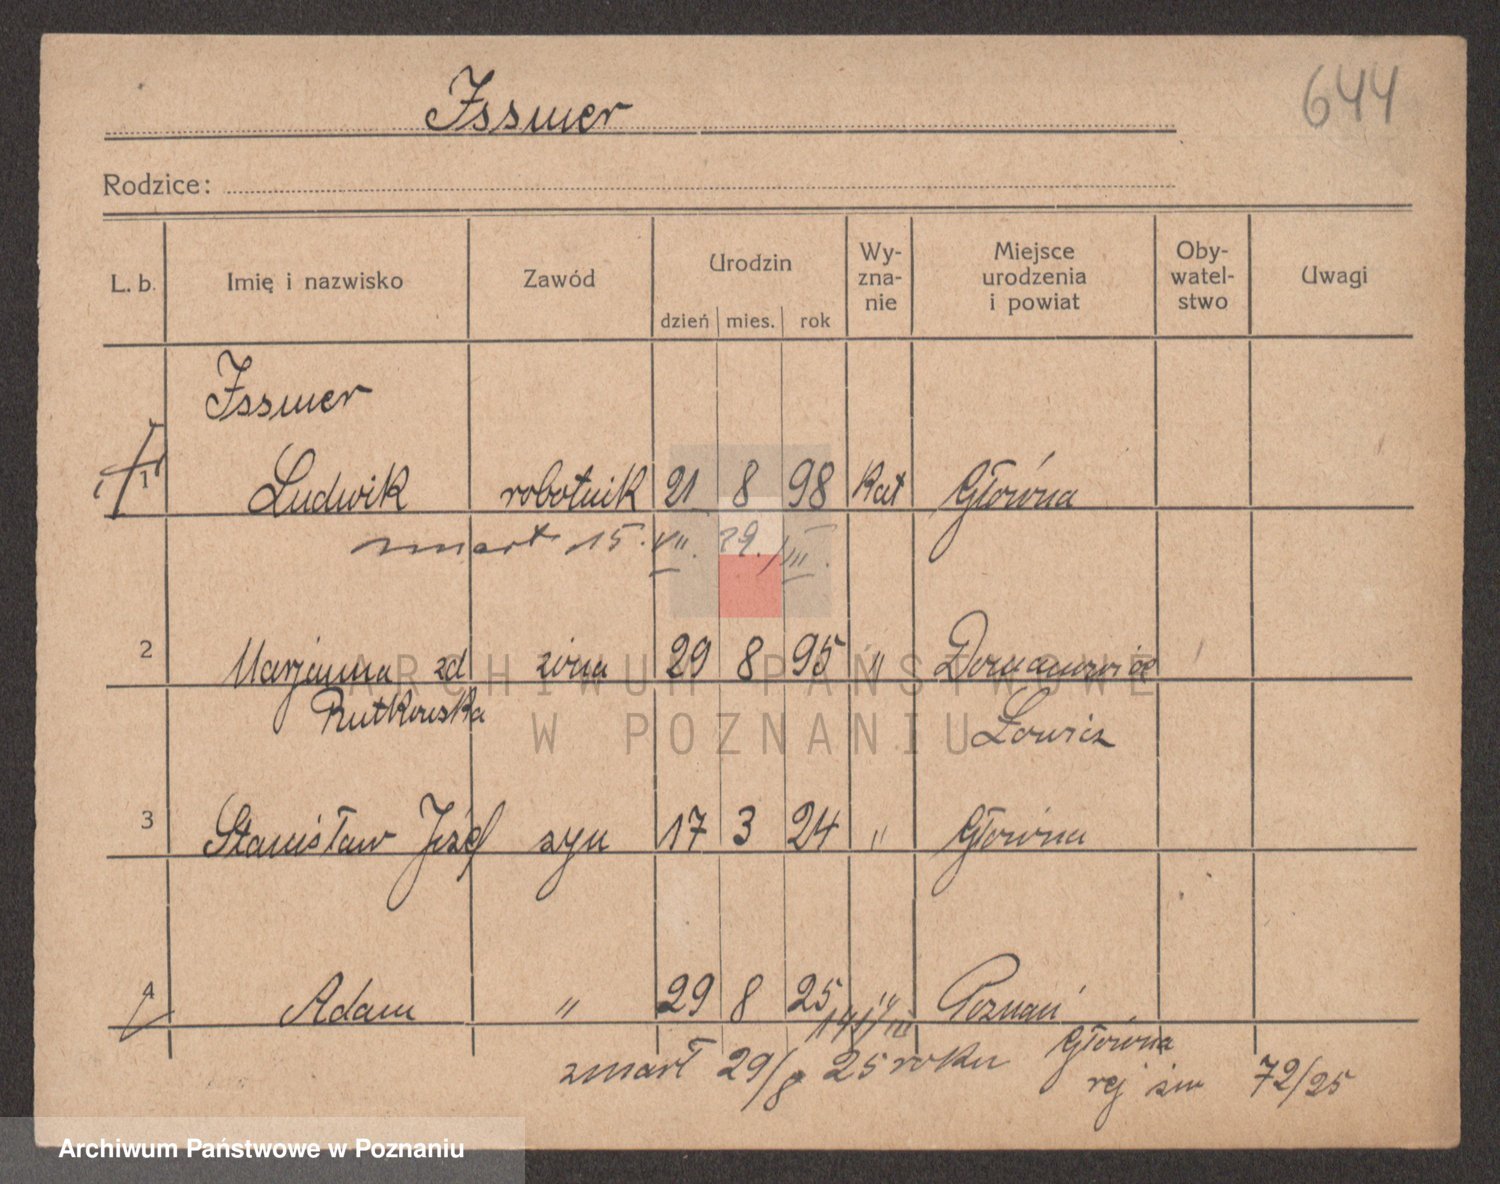 644
Issmer
Rodzice:
L. b. Imię i nazwisko Zawód Urodzin dzień mies. rok Wy-zna-nie Miejsce urodzenia i powiat Oby-watel-stwo Uwagi
Issmer
1 Ludwik robotnik 21 8 98 Kat Główna
zmarł 15. VII. 29.
2 Marjanna zd żona 29 8 95 " Domaniewice
Rutkowska Łowicz
3 Stanisław Józef syn 17 3 24 " Główna
4 Adam " 29 8 25 " Poznań
zmarł 29/8 25 roku Główna
rej zm 72/25
ARCHIWUM PAŃSTWOWE
W POZNANIU
Archiwum Państwowe w Poznaniu